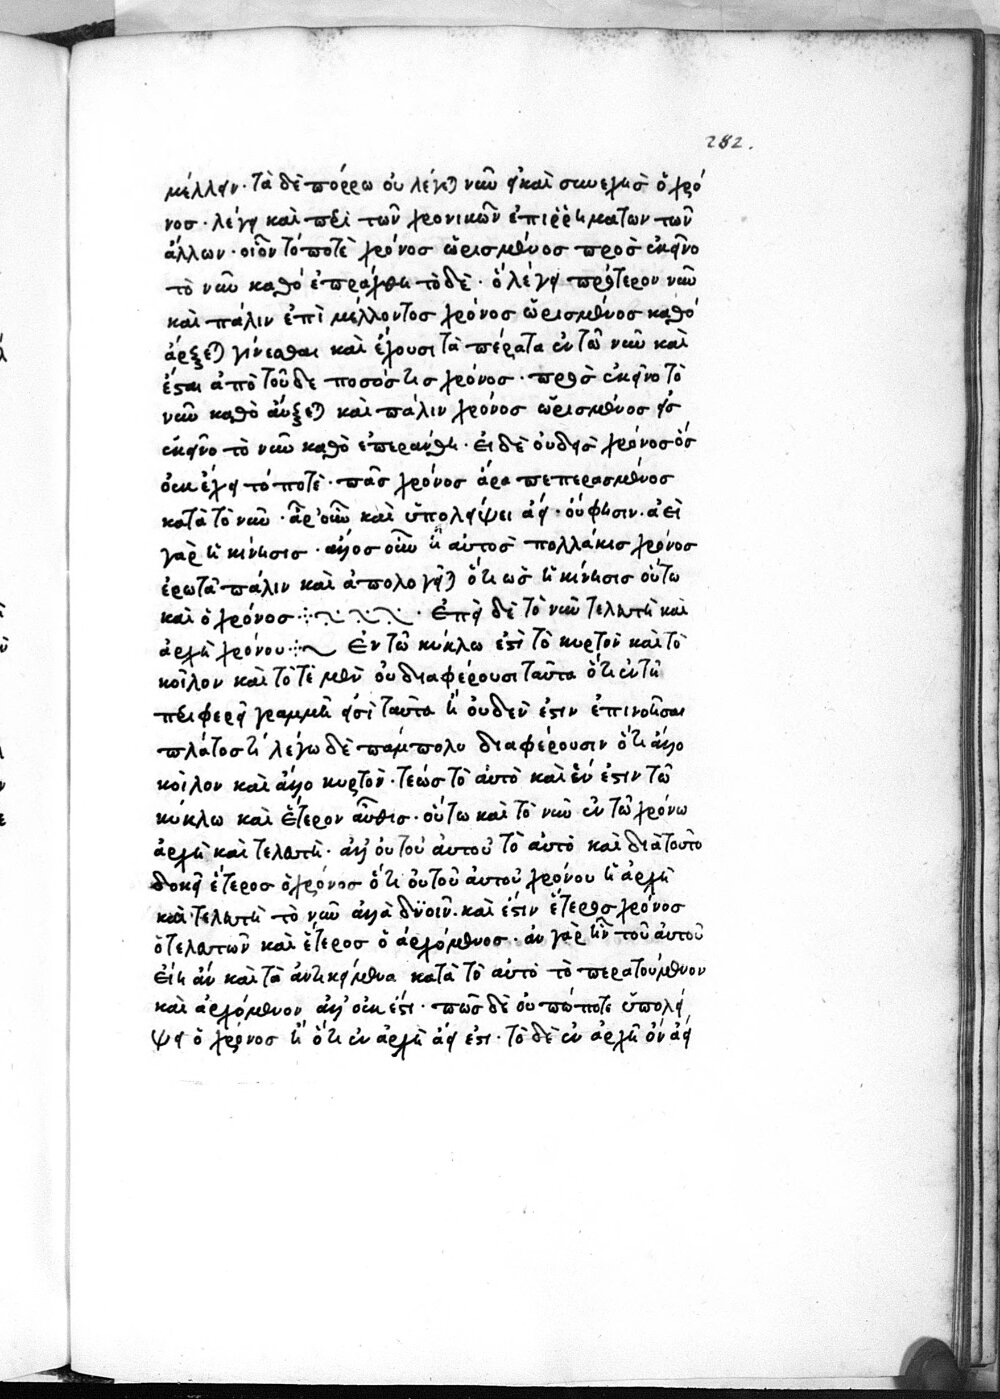 282.
μέλλειν· τὰ δὲ πόρρω οὐ λέγεται νῦν εἰ καὶ συνεχὴς ὁ χρό
νος· λέγει καὶ περὶ τῶν χρονικῶν ἐπιρρημάτων τῶν
ἄλλων· οἷον τὸ ποτὲ χρόνος ὡρισμένος πρὸς ἐκεῖνο
τὸ νῦν καθὸ ἐπράχθη τὸ δὲ· ὃ λέγει πρότερον νῦν
καὶ πάλιν ἐπὶ μέλλοντος χρόνος ὡρισμένος καθὸ
ἄρξεται γίνεσθαι καὶ ἔχουσι τὰ πέρατα ἐν τῶ νῦν καὶ
ἔσται ἀπὸ τοῦδε ποσός τις χρόνος· πρὸς ἐκεῖνο τὸ
νῦν καθὸ ἄρξεται καὶ πάλιν χρόνος ὡρισμένος εἰς
ἐκεῖνο τὸ νῦν καθὸ ἐπεράνθη· εἰ δὲ οὐδεὶς χρόνος ὃς
οὐκ ἔχει τό ποτὲ· πᾶς χρόνος ἄρα πεπερασμένος
κατὰ τὸ νῦν· ἆρ' οὖν καὶ ὑπολείψει ἀεί· οὔ φησιν· ἀεὶ
γὰρ ἡ κίνησις· ἄλλος οὖν ἢ αὐτὸς πολλάκις χρόνος
ἐρωτᾶ πάλιν καὶ ἀπολογεῖται ὅτι ὡς ἡ κίνησις οὕτω
καὶ ὁ χρόνος· ἐπεὶ δὲ τὸ νῦν τελευτὴ καὶ
ἀρχὴ χρόνου· Ἐν τῶ κύκλω ἐστὶ τὸ κυρτὸν καὶ τὸ
κοῖλον καὶ τότε μὲν οὐ διαφέρουσι ταῦτα ὅτι ἐν τῆ
περιφερεῖ γραμμῆ εἰσὶ ταῦτα ἧ οὐδέν ἐστιν ἐπινοῆσαι
πλάτος τί λέγω δὲ πάμπολυ διαφέρουσιν ὅτι ἄλλο
κοῖλον καὶ ἄλλο κυρτὸν· τέως τὸ αὐτὸ καὶ ἕν ἐστιν τῶ
κύκλω καὶ ἕτερον αὖθις· οὕτω καὶ τὸ νῦν ἐν τῶ χρόνω
ἀρχὴ καὶ τελευτὴ· ἀλλ' οὐ τοῦ αὐτοῦ τὸ αὐτὸ καὶ διὰ τοῦτο
δοκεῖ ἕτερος ὁ χρόνος ὅτι οὐ τοῦ αὐτοῦ χρόνου ἡ ἀρχὴ
καὶ τελευτὴ τὸ νῦν ἀλλὰ δυοῖν· καὶ ἔστιν ἕτερος χρόνος
ὁ τελευτῶν καὶ ἕτερος ὁ ἀρχόμενος· ἂν γὰρ ἦν τοῦ αὐτοῦ
εἴη ἂν καὶ τὰ ἀντικείμενα κατὰ τὸ αὐτὸ τὸ περατούμενον
καὶ ἀρχόμενον ἀλλ' οὐκ ἔστι· πῶς δὲ οὐ πώποτε ὑπολεί
ψει ὁ χρόνος ἢ ὅτι ἐν ἀρχῆ ἀεί ἐστι· τὸ δὲ ἐν ἀρχῆ ὂν ἀεὶ